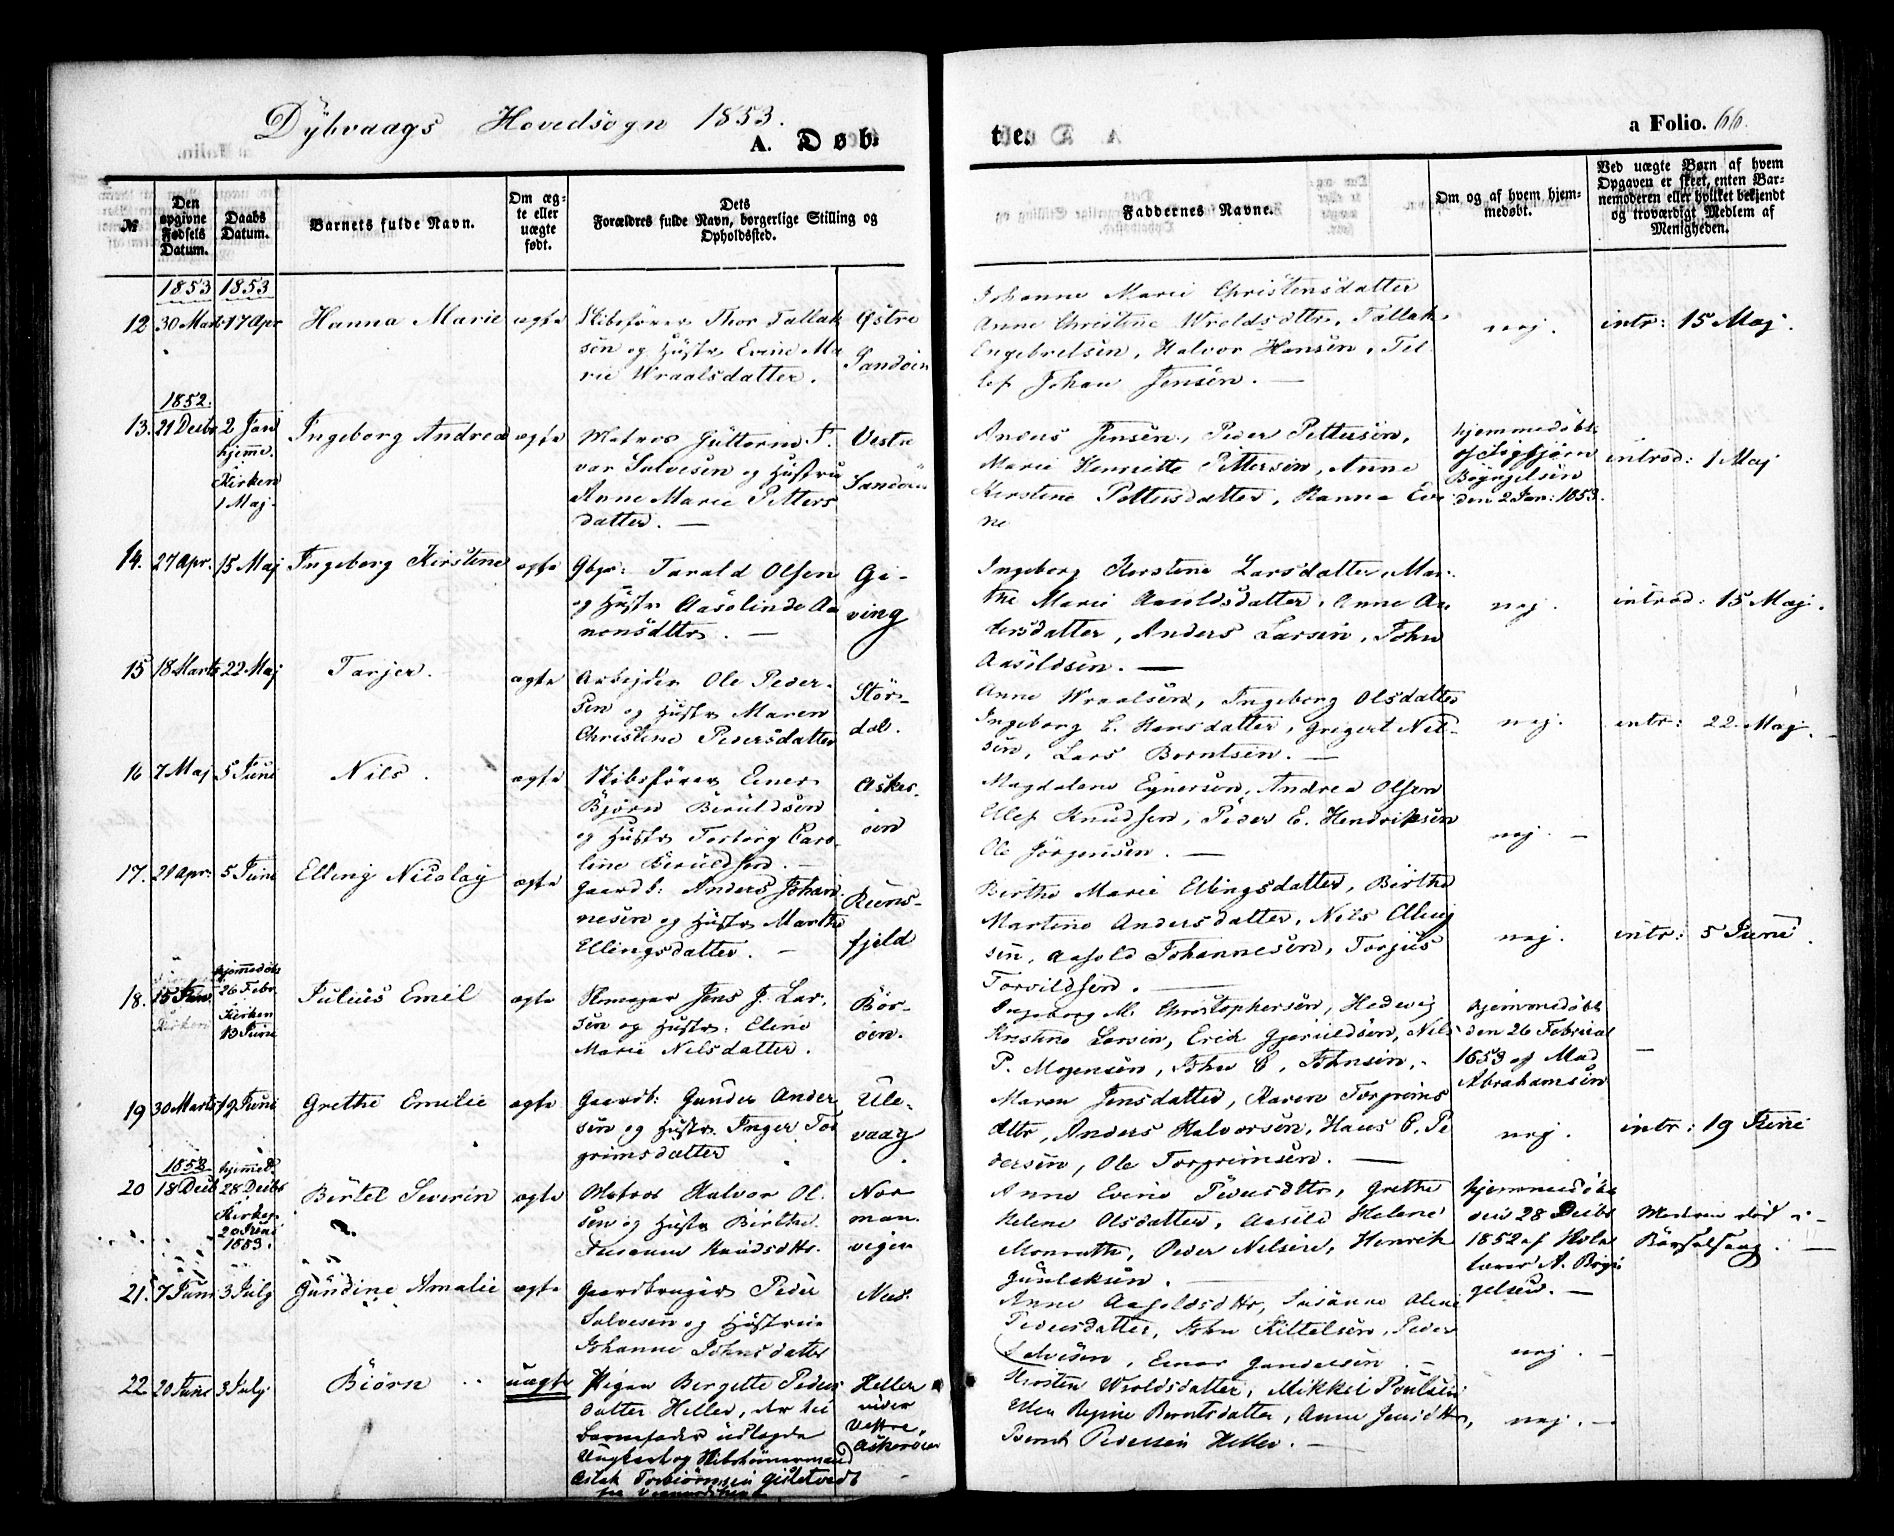 Dybvaags Hovedsogn 1853.
A. Døb
te.
a Folio. 66.
№
Den opgivne Fødsels Datum.
Daabs Datum.
Barnets fulde Navn.
Om ægte eller uægte født.
Dets
Forældres fulde Navn, borgerlige Stilling og
Opholdssted.
Faddernes Navne.
Om og af hvem hjem-
medøbt.
Ved uægte Børn af hvem
Opgaven er skeet, enten Bar-
nemoderen eller hvilket bekjendt
og troværdigt Medlem af
Menigheden.
1853 1853
12 30 Marts 17 Apr Hanna Marie ægte Skibsfører Thor Tallak
sen og Hustr Evine Ma
rie Wraalsdatter.
Østre
Sandøen
Johanne Marie Christensdatter
Anne Christine Wroldsdttr, Tallak
Engebretsen, Halvor Hansen, Tel
lef Johan Jensen. —
nej.
intr: 15 Maj.
1852.
13. 21 Decbr 2 Jan
hjemme.
Kirken
1 Maj.
Ingeborg Andrea ægte Matros Guttorm T.
var Salvesen og Hustru
Anne Marie Petters
datter. —
Vestre
Sandøen
Anders Jensen, Peder Pettersen,
Marie Henriette Pettersen, Anne
Kirstine Pettersdatter, Hanne Evi
ne
hjemmedøbt
af Sigbjørn
Børgelsen
den 2 Jan: 1853.
introd: 1 Maj
14. 27 Apr. 15 Maj Ingeborg Kirstine ægte Gbgr: Tarald Olsen
og Hustr Aasolinde Aa
nonsdttr. —
Gi-
ving
Ingeborg Kirstine Larsdatter, Mar-
the Marie Aasoldsdatter, Anne An
dersdatter, Anders Larsen, John
Aasoldsen. —
nej.
introd: 15 Maj.
15 18 Marts 22 Maj Tarjer. ægte Arbejder Ole Peder-
sen og Hustr Maren
Christine Pedersdatter
Stør-
dal.
Anne Wraalsen, Ingeborg Olsdatter
Ingeborg E. Hansdatter, Grigert Nil-
sen, Lars Berntsen. —
nej.
intr: 22. Maj.
16 7 Maj 5 Juni Nils. ægte Skibsfører Einer
Bjørn Beruldsen
og Hustr Torborg Caro-
line Beruldsen. —
Asker-
øen
Magdalene Eynersen, Andrea Olsen
Ellef Knudsen, Peder E. Hendriksen
Ole Jörgensen. —
nej. —
17. 21 Apr: 5 Juni Elling Nicolay ægte Gaardb: Anders Johan
nesen og Hustr Marthe
Ellingsdatter. —
Ravns-
fjeld
Birthe Marie Ellingsdatter, Birthe
Martine Andersdatter, Nils Elling
sen, Aasold Johannesen, Torjus
Torvildsen. —
nej.
intr: 5 Juni.
18. 15 Jan
hjemmedøbt
26 Febr.
Kirken
13 Juni
Julius Emil ægte Skomager Jens J. Lar-
sen og Hustr: Eline
Marie Nilsdatter.
Bor-
øen.
Ingeborg M. Christophersen, Hedevig
Kirstine Larsen, Erich Gjeruldsen, Nils
P. Mogensen, John E. Johnsen.
hjemmedøbt
den 26 Februar
1853 af Mad
Abrahamsen
—
19 30 Marts 19 Juni Grethe Emilie ægte Gaardb: Gunder Ander
sen og Hustr Inger Tor
grimsdatter
Ule-
vaag
Maren Jensdatter, Karen Torgrims
dttr, Anders Halvorsen, Hans E. Pe
dersen, Ole Torgrimsen. —
nej.
intr: 19 Juni
1852
20 18 Decb
hjemmed.
28 Decbr
Kirken
20 Juni
1853.
Bertel Severin ægte Matros Halvor Ol-
sen og Hustr Birthe
Susanne Knudsdttr.
Nor
man-
vigen
Anne Evine Pedersdttr, Grethe
Helene Olsdatter, Aasild Helene
Monrath, Peder Nelsen, Henrik
Gunleksen. —
hjemmedøbt
den 28 Decbr
1852 af Skole
lærer A. Børge
gelsen. —
Moderen død i
Barselseng. —
21. 7 Juni 3 July Gundine Amalie ægte Gaardbruger Peder
Salvesen og Hustrue
Johanne Johnsdatter
Næs.
Anne Aasoldsdttr, Susanne Oline
Pedersdatter, John Kittelsen, Peder
Salvesen, Einar Gundersen. —
nej. —
22 20 Juni 3 July Biørn uægte Pigen Bergette Peders
datter Heller, der til
Barnefader udlagde
Ungkarl og Skibstømmermand
Aslak Torbiørnsen Gisletvedt
Heller
under
Vestre
Askerøen
Kirsten Wroldsdatter, Mikkel Poulsen
Ellen Regine Berntsdatter, Anne Jensdttr,
Bernt Pedersen Heller. —
nej. —